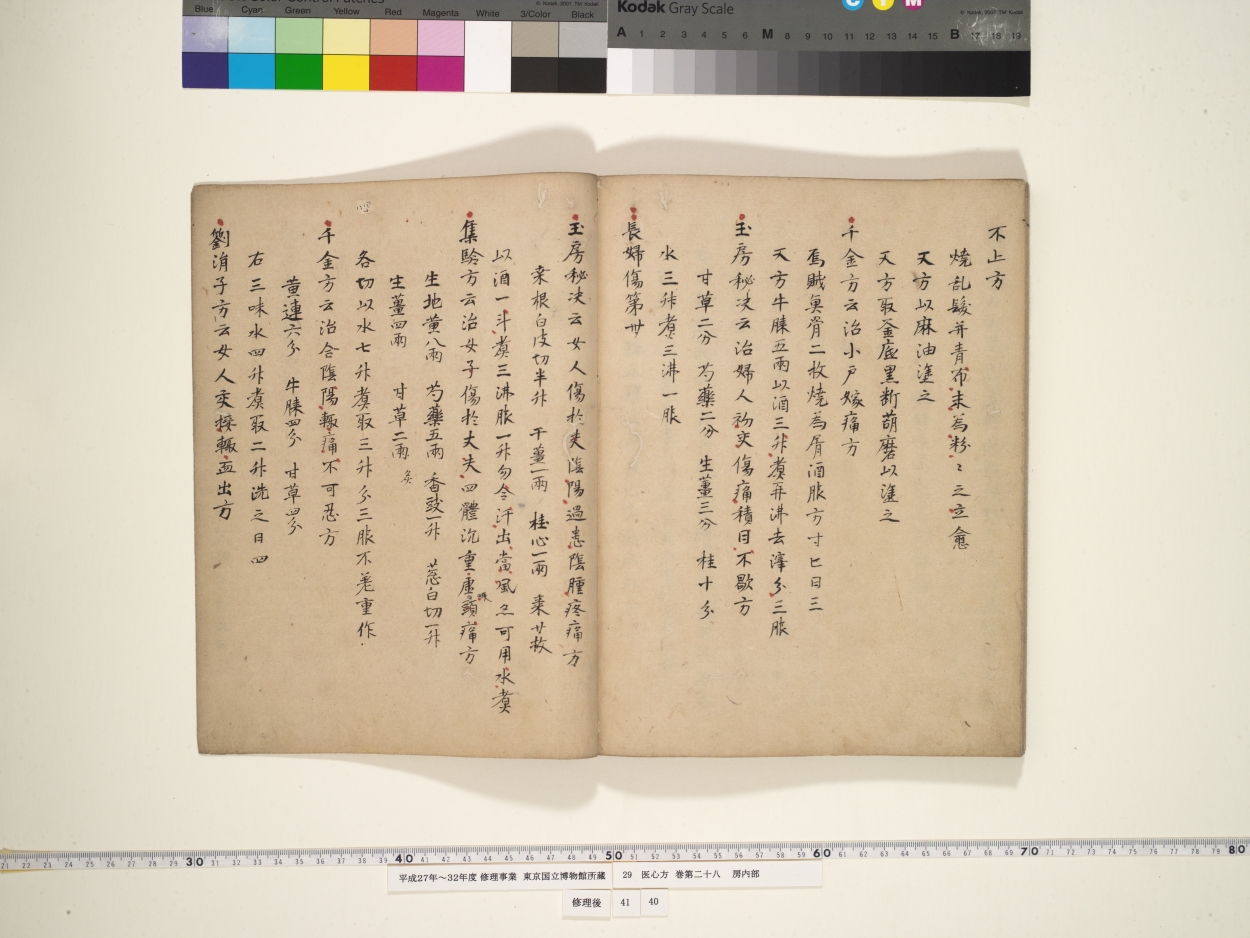 Blue Cyan Green Yellow Red Magenta White 3/Color Black
© Kodak, 2007 TM: Kodak
Kodak Gray Scale
C Y M
© Kodak, 2007 TM: Kodak
A 1 2 3 4 5 6 M 8 9 10 11 12 13 14 15 B 17 18 19
不止方
燒乱髮并青布末為粉〻之立愈
又方以麻油塗之
又方取釜底黒断葫磨以塗之
千金方云治小戸嫁痛方
烏賊魚骨二枚燒為屑酒服方寸匕日三
又方牛膝五兩以酒三升煮再沸去滓分三服
玉房秘决云治婦人初交傷痛積日不歇方
甘草二分 芍藥二分 生薑三分 桂十分
水三升煮三沸一服
長婦傷第卅
玉房秘决云女人傷於夫陰陽過患陰腫疼痛方
桒根白皮切半升 干薑一兩 桂心一兩 棗廿枚
以酒一斗煮三沸服一升勿令汗出當風亦可用水煮
集驗方云治女子傷於丈夫四體沉重虛頭痛方
生地黄八兩 芍藥五兩 香豉一升 葱白切一升
生薑四兩 甘草二兩 炙
各切以水七升煮取三升分三服不差重作
千金方云治合陰陽輙痛不可忍方
黄連六分 牛膝四分 甘草四分
右三味水四升煮取二升洗之日四
劉涓子方云女人交接輙血出方
30 40 50 60 70 80
平成27年～32年度 修理事業 東京国立博物館所蔵
29 医心方 巻第二十八 房内部
修理後 41 40